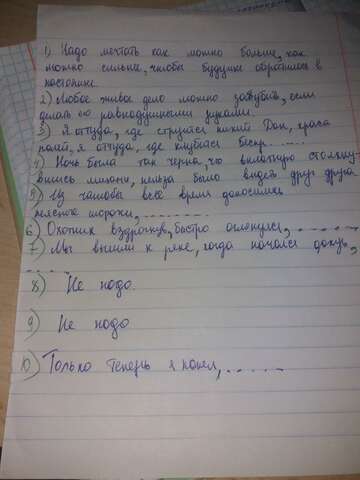 1) Надо мечтать как можно больше, как
можно сильнее, чтобы будущее обратилось в
настоящее.
2) Любое живое дело можно загубить, если
делать его равнодушными руками.
3) Я оттуда, где струится тихий Дон, краса
полей, я оттуда, где клубится беспр......
4) Ночь была так черна, что вплотную столкну-
вшись лицами, нельзя было видеть друг друга
5) Из чащобы всё время доносились
неясные шорохи, .......
6) Охотник вздрогнув, быстро оглянулся, ......
7) Мы вышли к реке, когда начался дождь,
8) Не надо.
9) Не надо
10) Только теперь я понял, ......